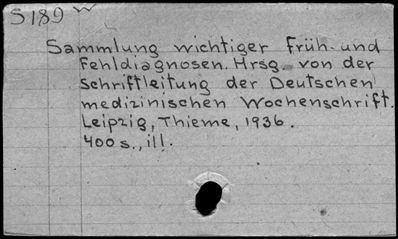 S189 W
Sammlung wichtiger Früh- und
Fehldiagnosen. Hrsg. von der
Schriftleitung der Deutschen
medizinischen Wochenschrift.
Leipzig, Thieme, 1936.
400s., ill.